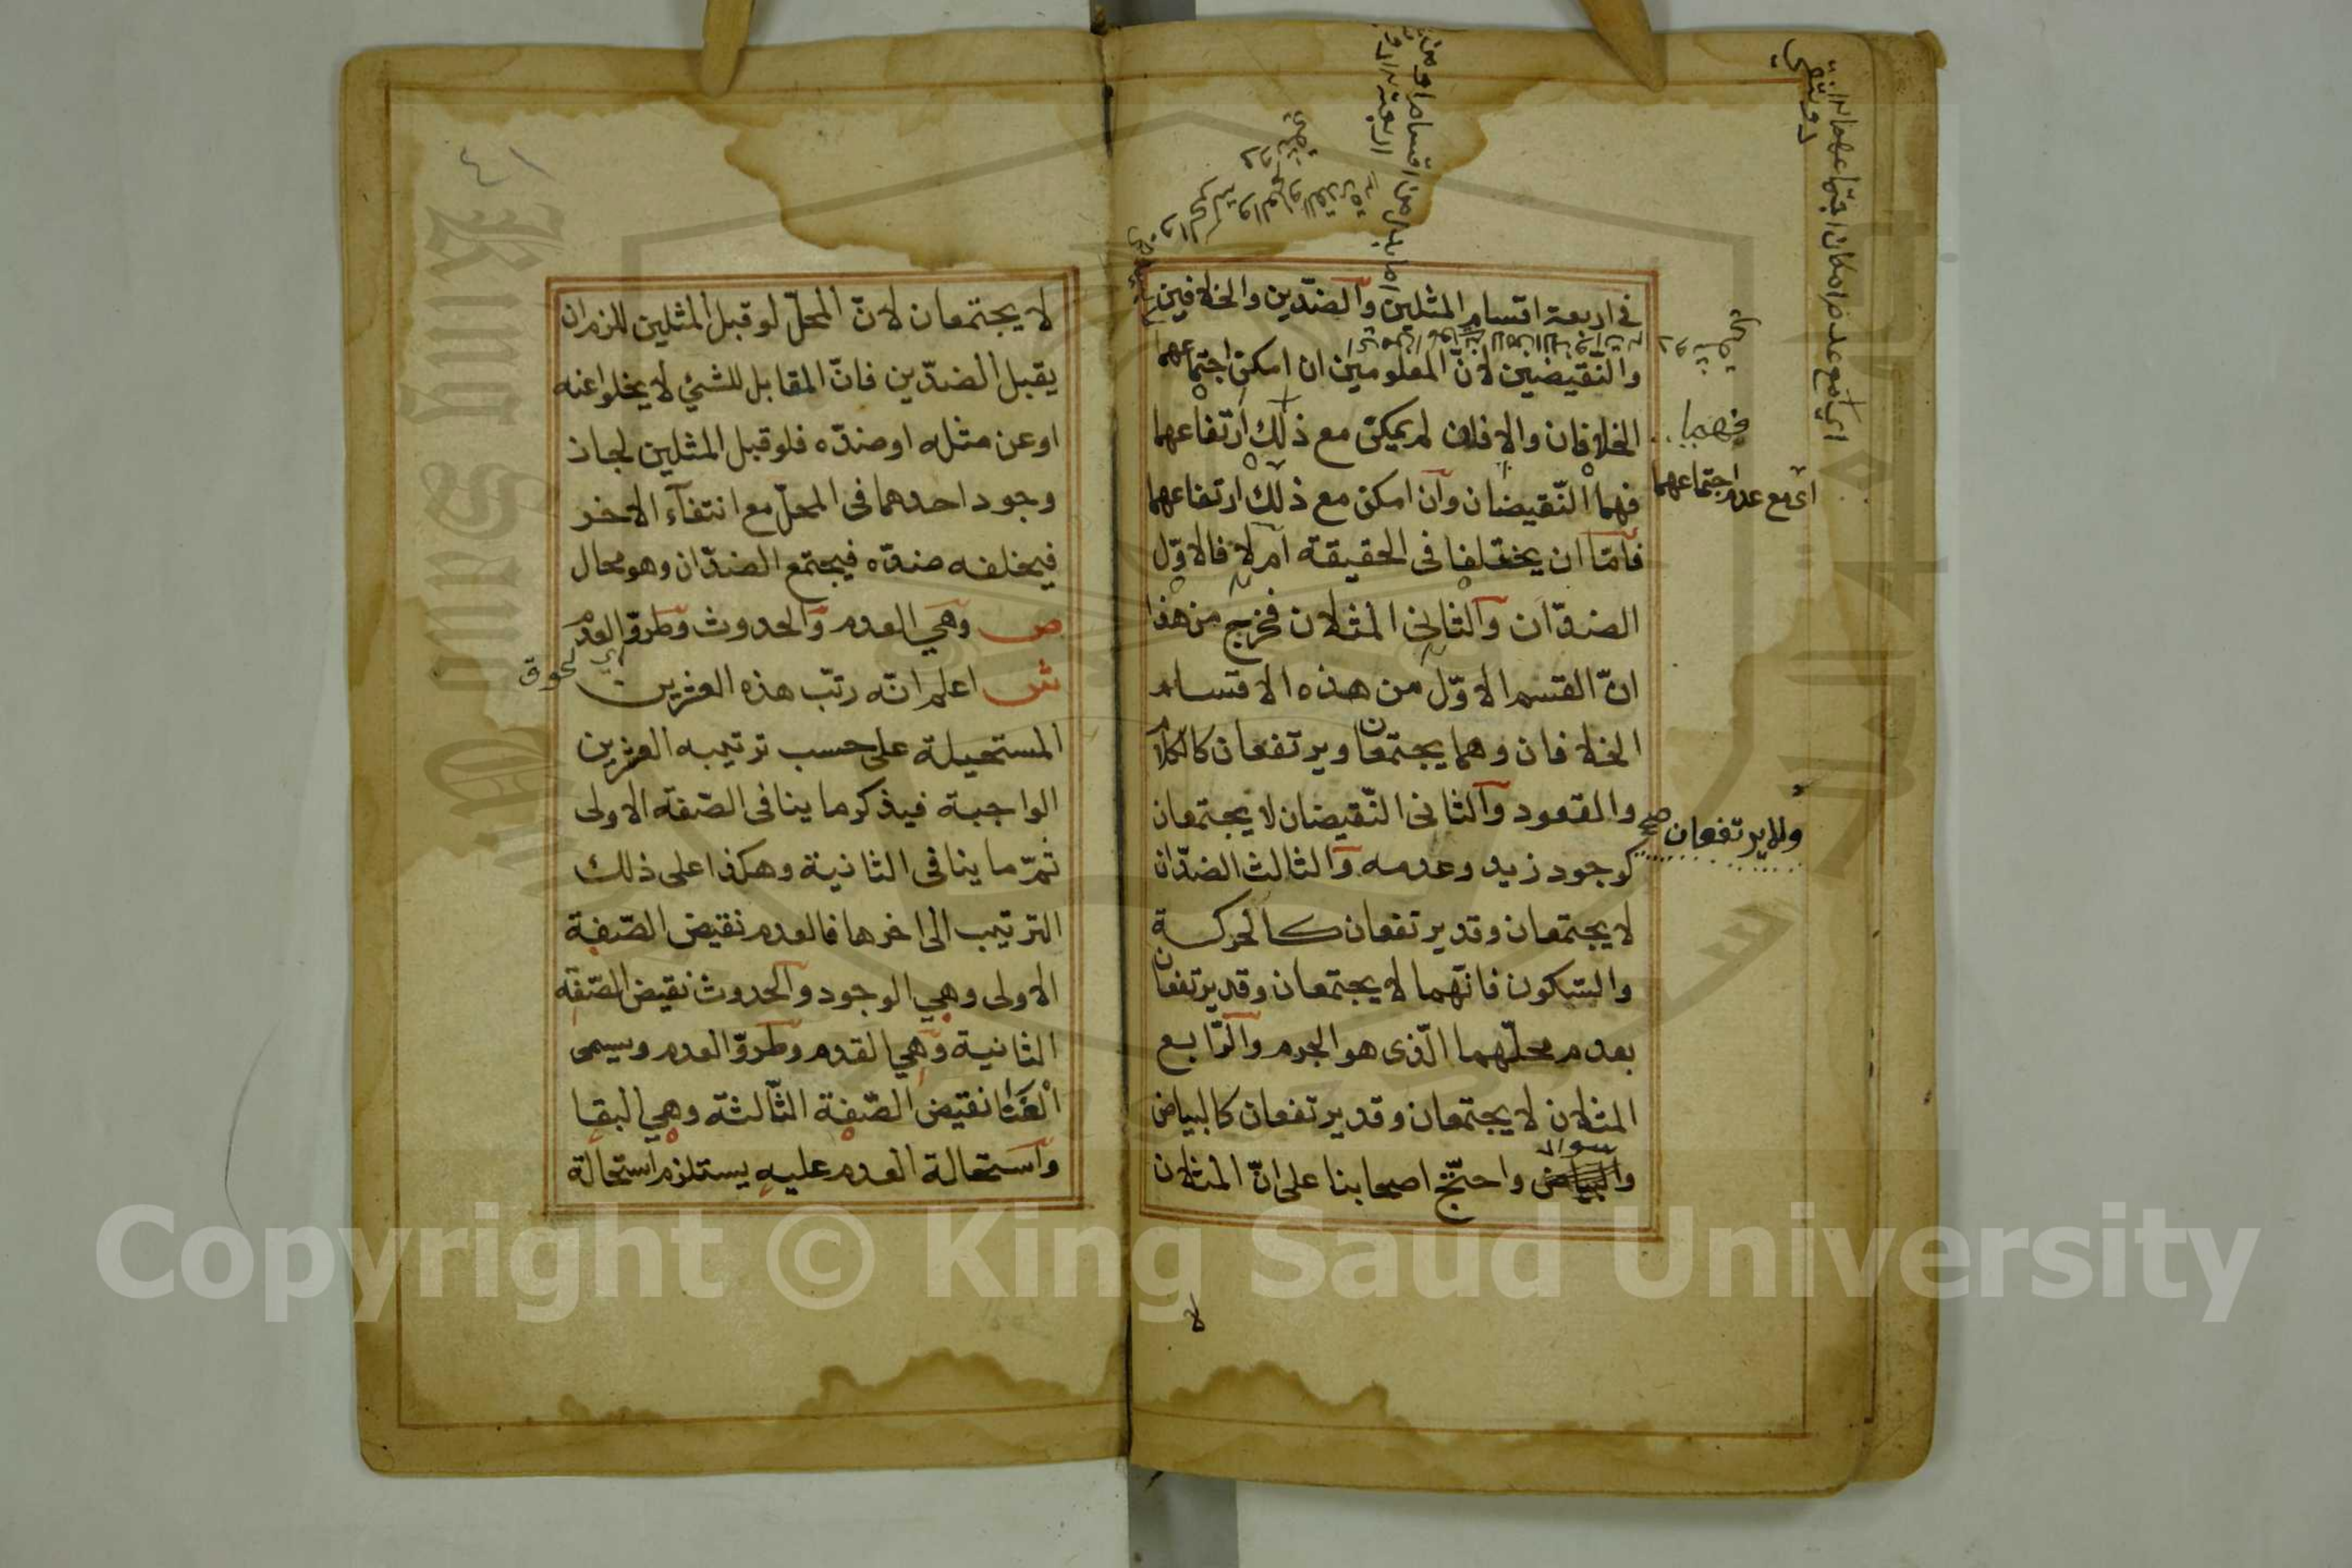 في اربعة اقسام المثلين والضدّين والخلافين
والنّقيضين لانّ المعلومين ان امكن اجتماعهما
فهما
الخلافان والا فان لم يمكن مع ذلك ارتفاعهما
اى مع عدم اجتماعهما
فهما النّقيضان وان امكن مع ذلك ارتفاعهما
فامّا ان يختلفا فى الحقيقة ام لا فالاوّل
الضدّان والثانى المثلان فخرج من هذا
انّ القسم الاوّل من هذه الاقسام
الخلافان وهما يجتمعان ويرتفعان كالكلام
والقعود والثانى النّقيضان لا يجتمعان
ولا يرتفعان صح
كوجود زيد وعدمه والثالث الضدّان
لا يجتمعان وقد يرتفعان كالحركة
والسّكون فانّهما لا يجتمعان وقد يرتفعان
بعدم محلّهما الّذى هو الجرم والرّابع
المثلان لا يجتمعان وقد يرتفعان كالبياض
والبياض واحتّج اصحابنا على انّ المثلان
لا
اي مع عدم امكان اجتماعهما
٤١
لا يجتمعان لانّ المحلّ لو قبل المثلين للزم ان
يقبل الضدّين فانّ المقابل للشئ لا يخلوا عنه
او عن مثله او ضدّه فلو قبل المثلين لجاز
وجود احدهما فى المحلّ مع انتفاء الاخر
فيخلفه ضدّه فيجتمع الضدّان وهو محال
ص وهي العدم والحدوث وطروّ العدم
اي لحوق
ش اعلم انّه رتّب هذه العشرين
المستحيلة على حسب ترتيبه العشرين
الواجبة فيذكر ما ينافى الصّفة الاولى
ثمّ ما ينافى الثانية وهكذا على ذلك
الترتيب الى اخرها فالعدم نقيض الصّفة
الاولى وهي الوجود والحدوث نقيض الصّفة
الثانية وهي القدم وطروّ العدم ويسمى
الفنا نقيض الصّفة الثّالثة وهي البقا
واستحالة العدم عليه يستلزم استحالة
Copyright © King Saud University